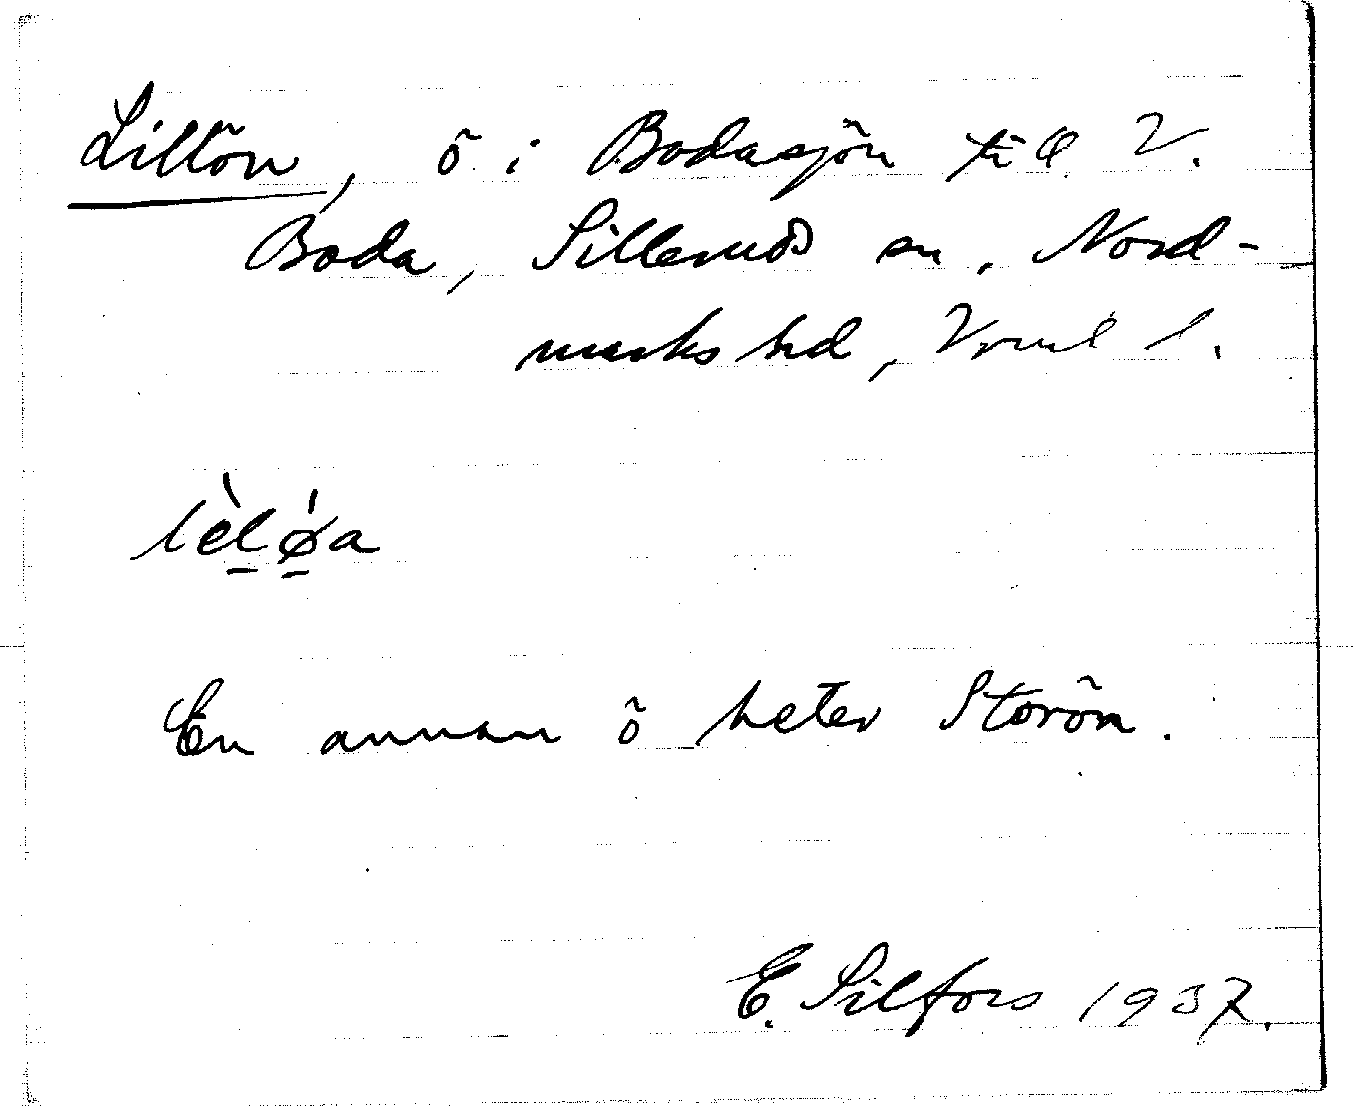 Lillön, ö i Bodasjön till V.
Boda, Sillerud sn, Nord-
marks hd, Vrml l.
lèl̲ǿ̲a
En annan ö heter Storön.
E. Silfors 1937.